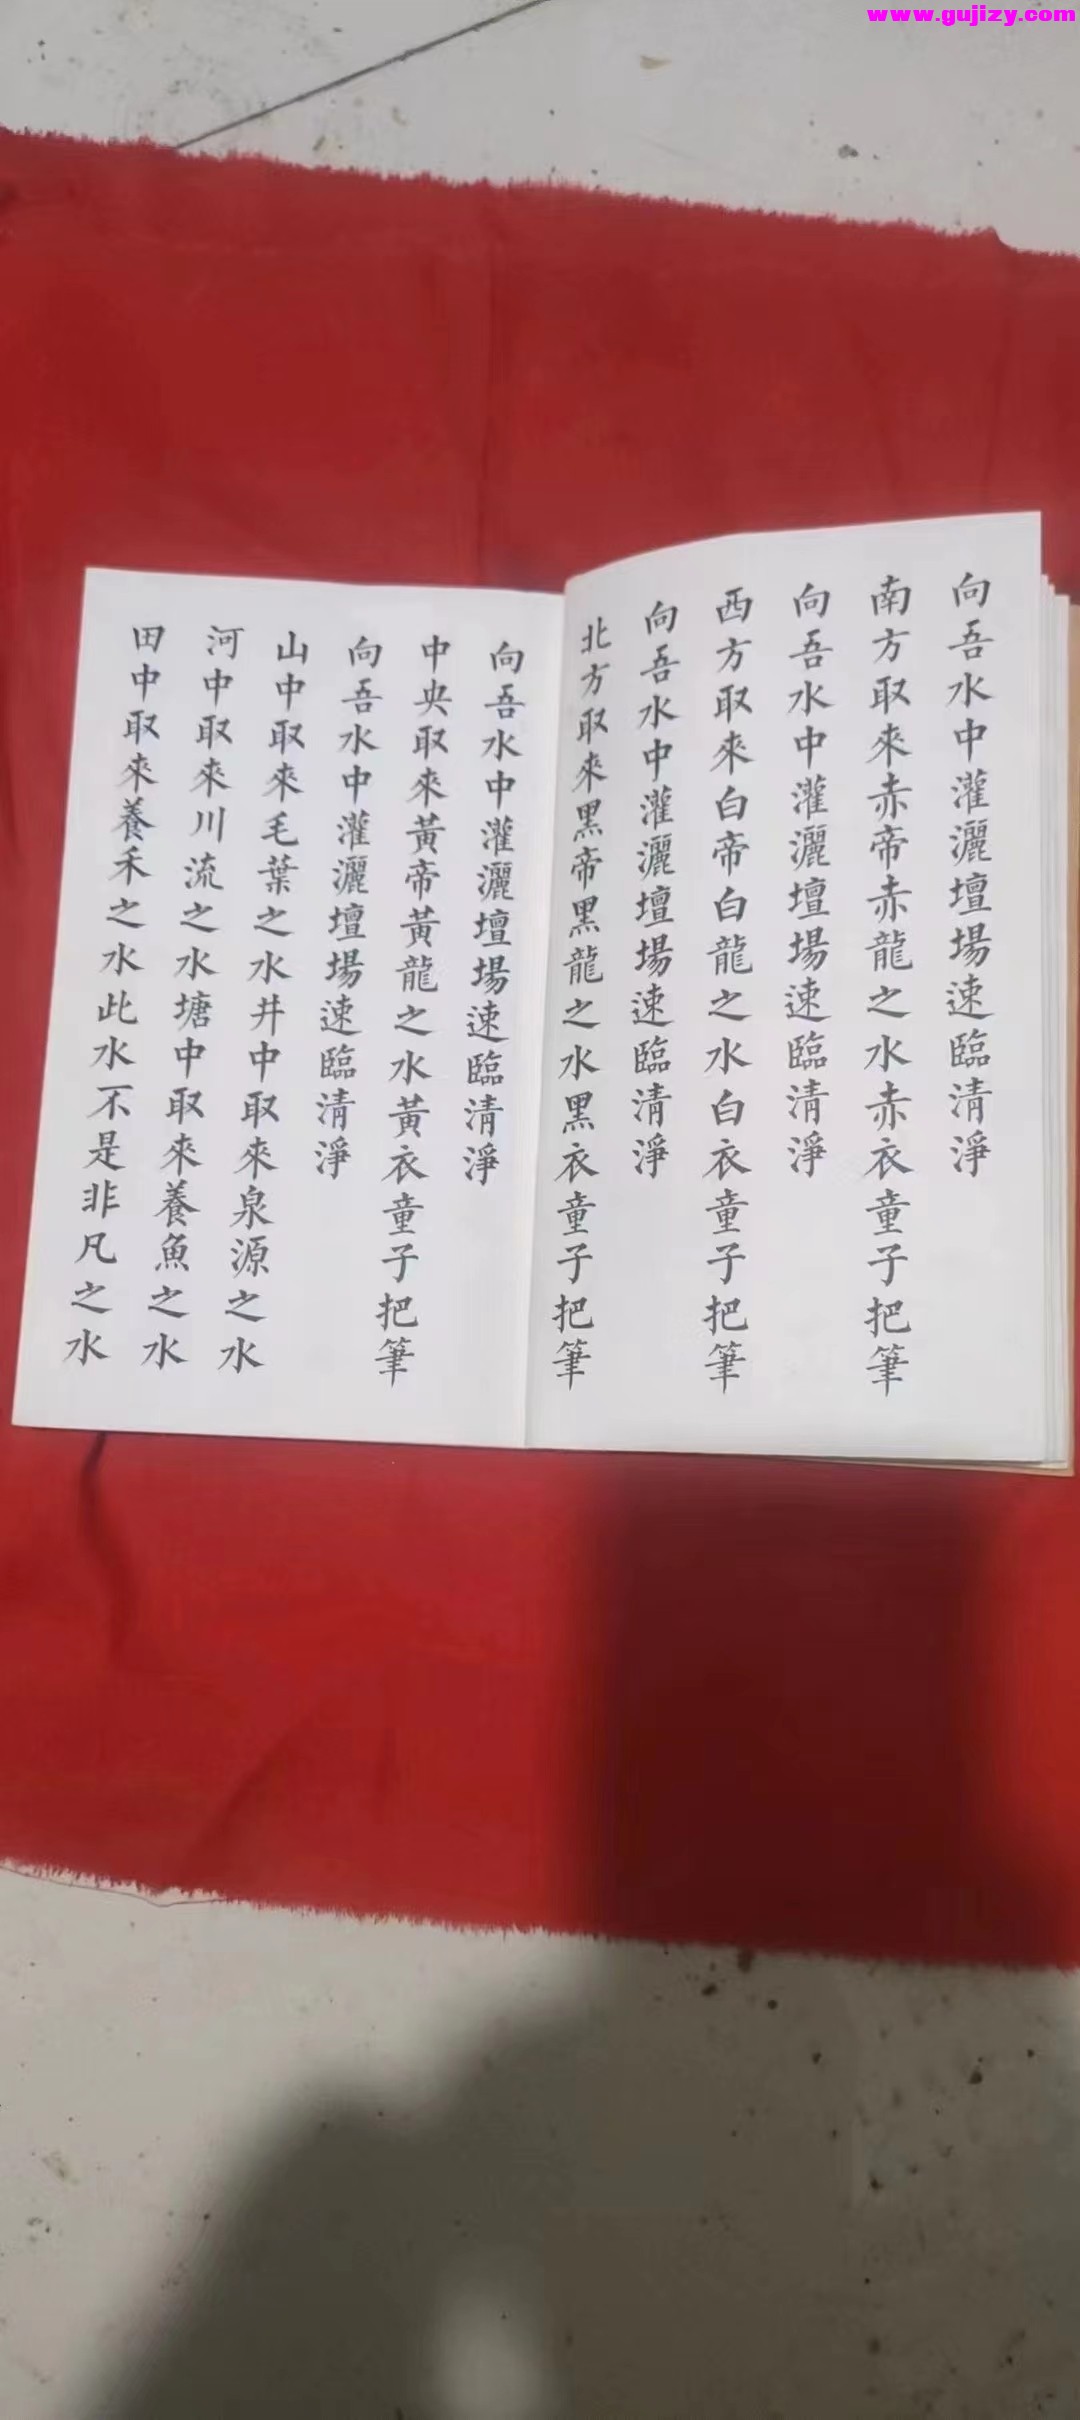 www.gujizy.com
向吾水中灌灑壇場速臨清淨
南方取來赤帝赤龍之水赤衣童子把筆
向吾水中灌灑壇場速臨清淨
西方取來白帝白龍之水白衣童子把筆
向吾水中灌灑壇場速臨清淨
北方取來黑帝黑龍之水黑衣童子把筆
向吾水中灌灑壇場速臨清淨
中央取來黃帝黃龍之水黃衣童子把筆
向吾水中灌灑壇場速臨清淨
山中取來毛葉之水井中取來泉源之水
河中取來川流之水塘中取來養魚之水
田中取來養禾之水此水不是非凡之水